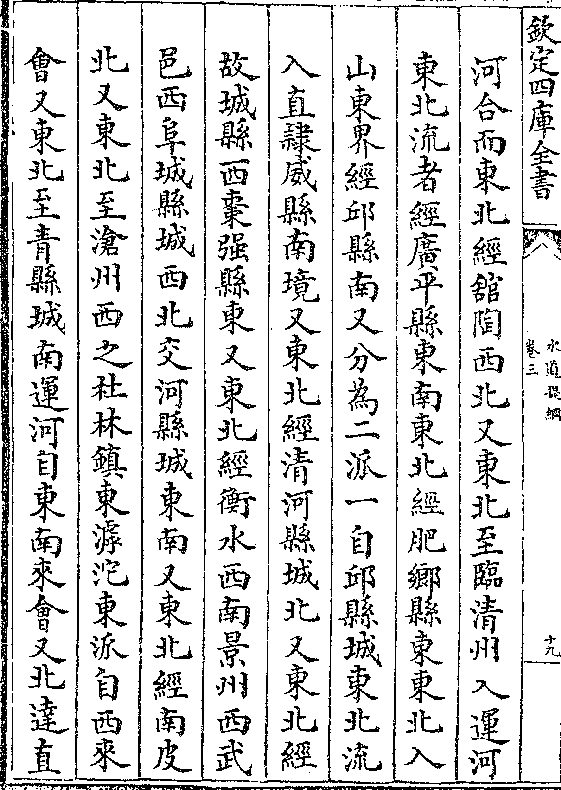 欽定四庫全書
水道提綱
卷三
十九
河合而東北經館陶西北又東北至臨清州入運河
東北流者經廣平縣東南東北經肥鄉縣東東北入
山東界經邱縣南又分為二派一自邱縣城東北流
入直隸威縣南境又東北經清河縣城北又東北經
故城縣西棗强縣東又東北經衡水西南景州西武
邑西阜城縣城西北交河縣城東南又東北經南皮
北又東北至滄州西之杜林鎮東滹沱東派自西來
會又東北至青縣城南運河自東南來會又北達直